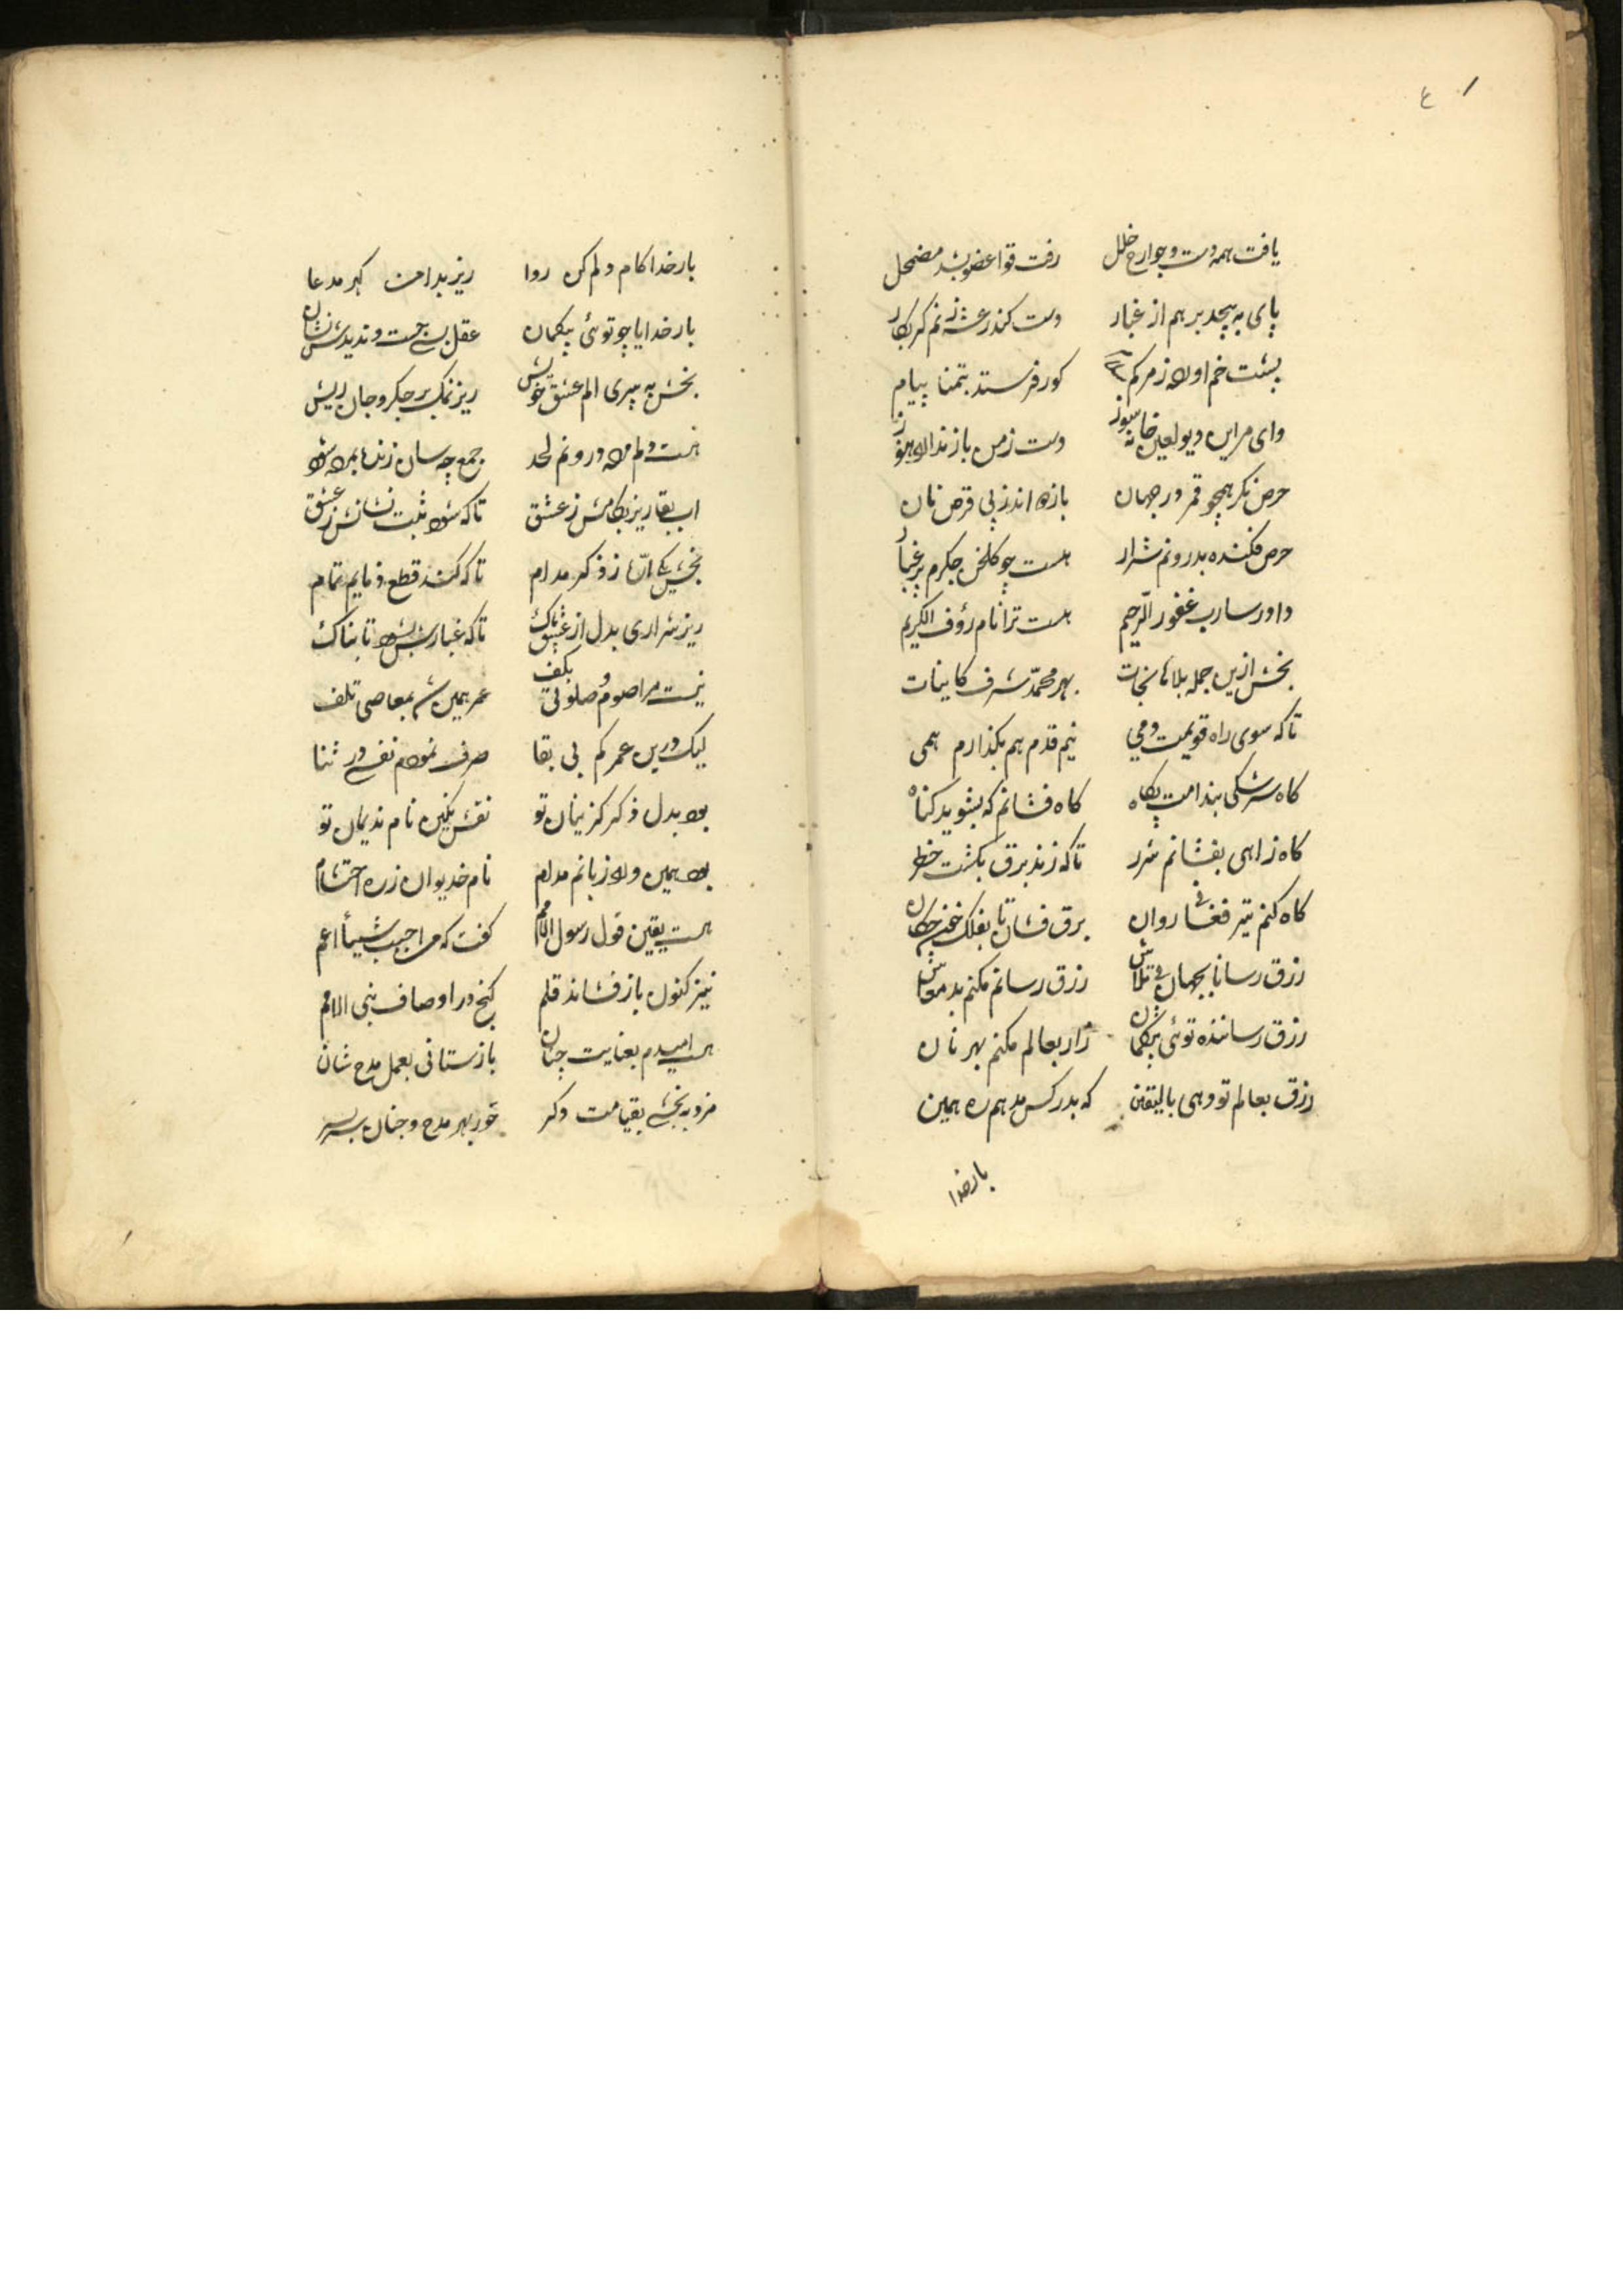 ع
یافت همه دست و جوارح خلل رفت قوا عضو بشد مضمحل
پای به پیچد بر هم از غبار دست کند رعشه زنم گر بکار
پشت خم اورد ز مرگم کور فرستد بتمنا پیام
وای مر این دیو لعین خانه سوز دست ز من باز ندارد هنوز
حرص نگر همچو قمر در جهان بازه اندر پی قرص نان
حرص فکنده بدرونم شرار هست چو گلخن جگرم پر غبار
داورسا رب غفور الرحیم هست ترا نام رؤف الکریم
بخش ازین جمله بلاها نجات بهر محمّد شرف کاینات
تا که سوی راه قویمت دمی نیم قدم هم بگذارم همی
کاه سرشکی بندامت پگاه کاه فشانم که بشوید کناه
کاه ز اهی بفشانم شرر تا که زند برق بکشت خطر
کاه کنم تیر فغانی روان برق فشان تا بفلک
رزق رسانا بجهان فی تلاش رزق رسانم مکنم بد معاش
رزق رساننده توئی بیکمان زار بعالم مکنم بهر نان
رزق بعالم تو دهی بالیقین که بدر کس مدهم ره همین
بارخدا
بارخدا کام دلم کن روا ریز بدامن گهر مدعا
بارخدایا چو توئی بیکمان عقل بسی جست و ندیدش نشان
بخش به پیری الم عشق خویش ریز نمک بر جکر و جان ریش
هست دلم مرده درونم لحد جمع چه سان زنده بمرده شود
اب بقا ریز بکامش ز عشق تا که شود ثبت نشانش ز عشق
بخش یکی ز ذکر مدام تا که کند قطع ذمایم تمام
ریز شراری بدل از عشق پاک تا که غبارش بشود تابناک
نیست مرا صوم و صلوتی بکف عمر همین شد بمعاصی تلف
لیک درین عمر کم بی بقا صرف نمودم نفسی در ثنا
بود بدل ذکر کزیمان تو نقش نکین نام ندیمان تو
بود همین ورد زبانم مدام نام خدیوان ز ره احتشام
هست یقین قول رسول گفت که من احب شیئاً اعم
نیز کنون باز فشاند قلم کنج در اوصاف نبی الامم
هست امیدم بعنایت چنان بازستانی بعمل مدح شان
مزد به بخشی بقیامت دکر خور بهر مدح و جنان سر بسر